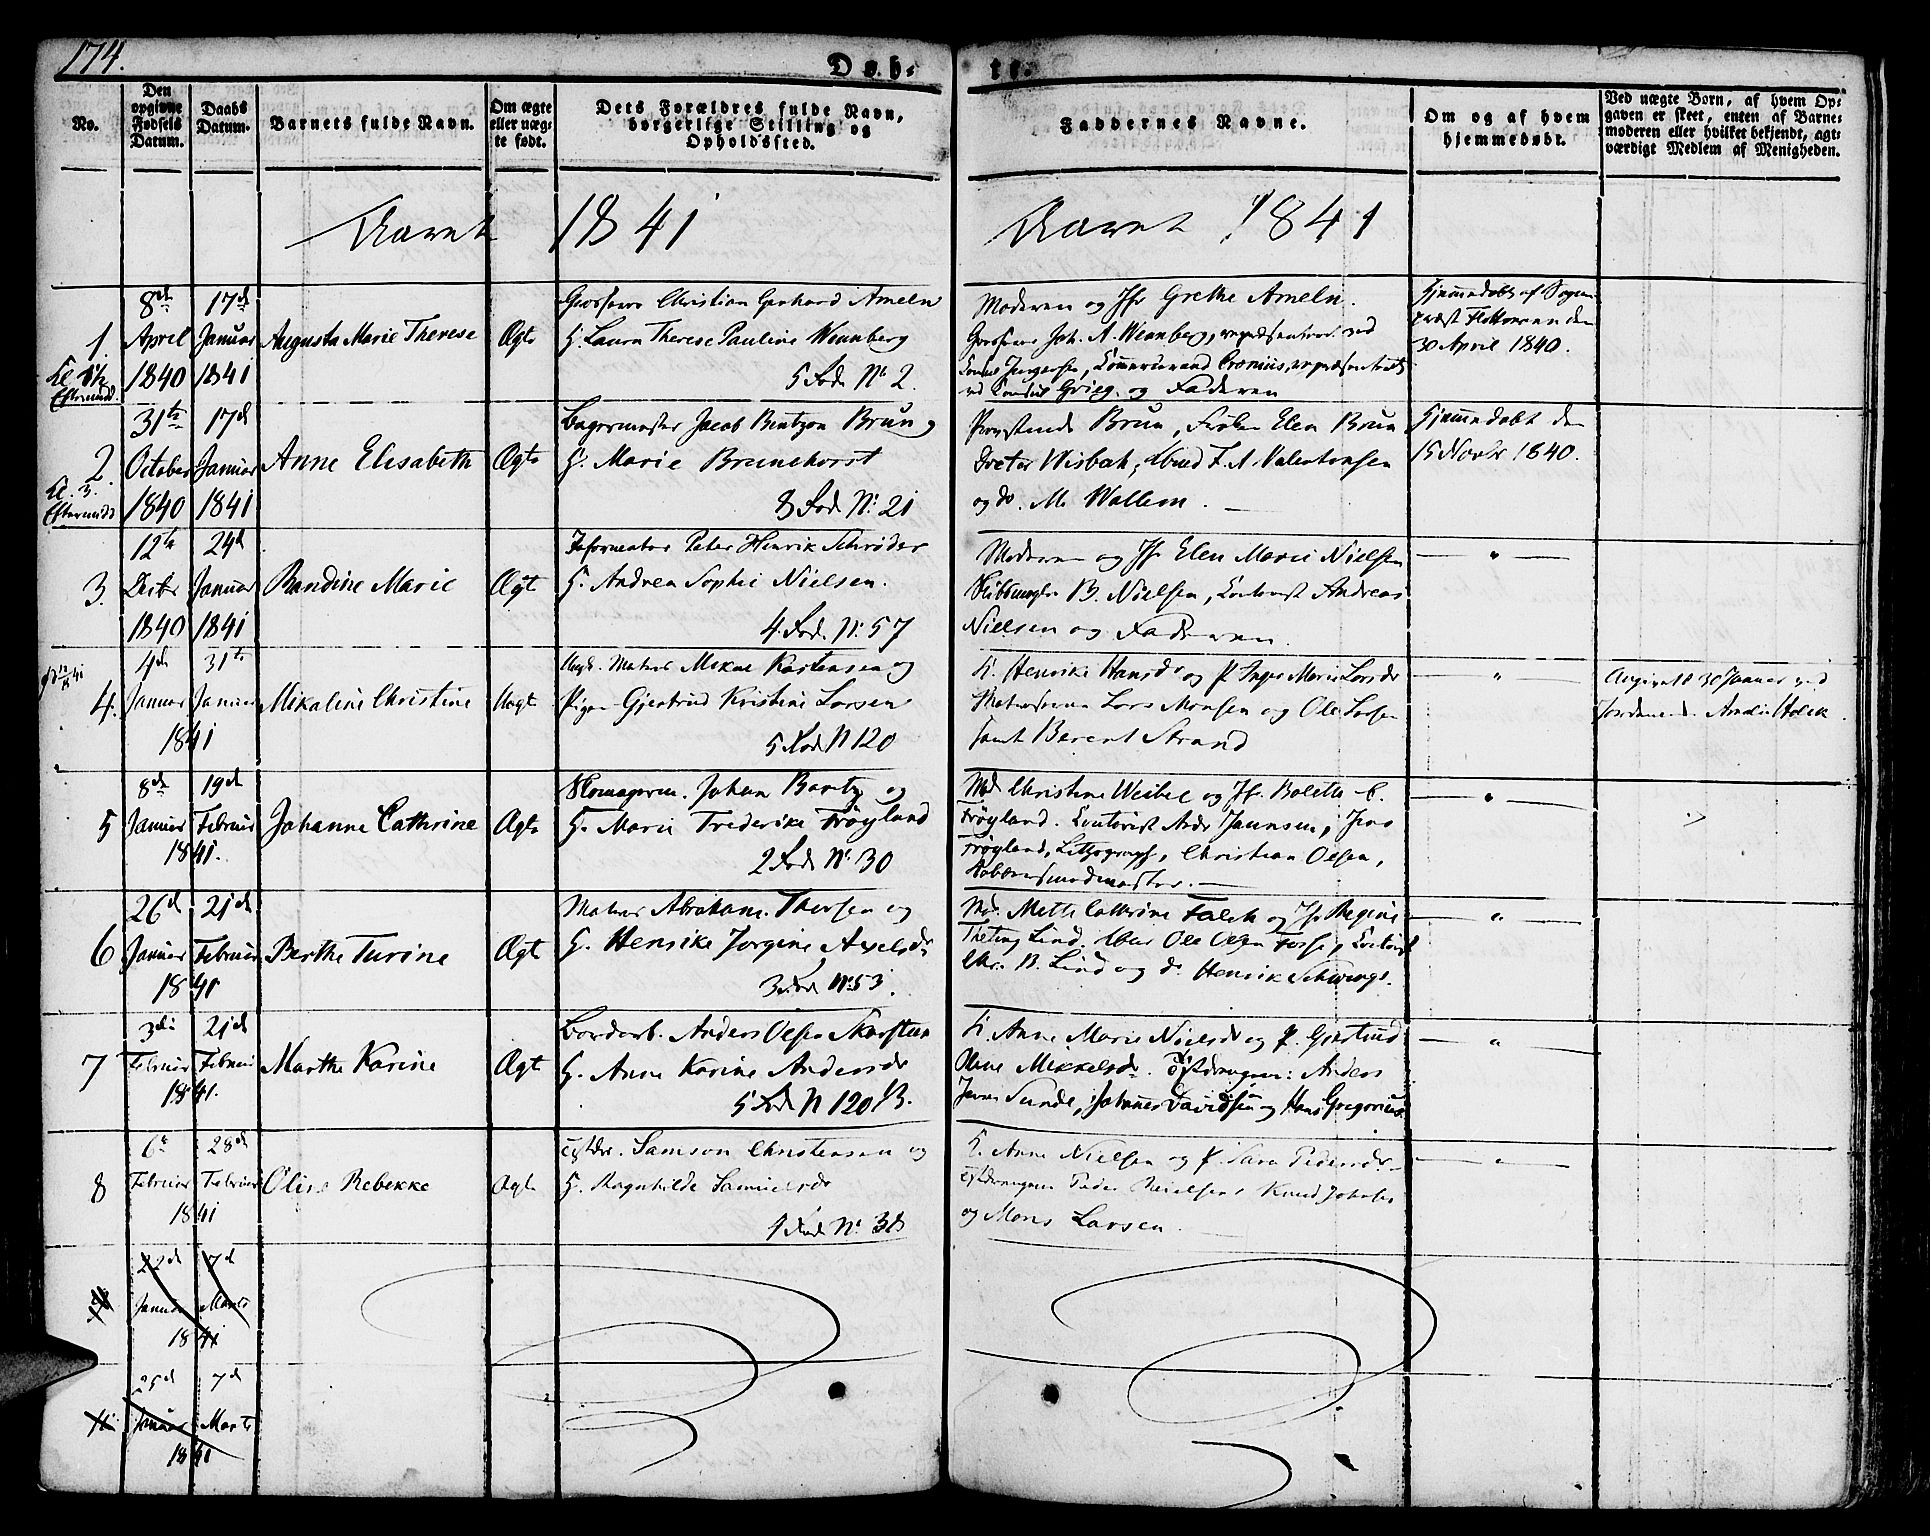 174.
Døb-
te.
No.
Den opgivne Fødsels Datum.
Daabs Datum.
Barnets fulde Navn.
Om ægte eller uægte født.
Dets Forældres fulde Navn, borgerlige Stilling og Opholdssted.
Faddernes Navne.
Om og af hvem hjemmedøbt.
Ved uægte Børn, af hvem Opgaven er skeet, enten af Barnemoderen eller hvilket bekjendt, agtværdigt Medlem af Menigheden.
Aaret 1841
Aaret 1841
1.
8de April 1840
17de Januar 1841
Augusta Marie Therese
Ægte
Grosserer Christian Gerhard Ameln
H. Laura Therese Pauline Wennberg
5 Rode No 2.
Moderen og Jfr Grethe Ameln.
Grosserer Joh. A. Wennberg, repræsenteret ved
ved Konsul Grieg. og Faderen
Hjemmedøbt af Sogne
præst den
30 April 1840.
2.
Kl. 3.
31te October 1840
17de Januar 1841
Anne Elisabeth
Ægte
Bagermester Jacob Bentzon Brun og
H. Marie Brunchorst
8 Rode No. 21
Brun, Frøken Elen Brun
og do. M. Wallem.
Hjemmedøbt den
15 Novbr 1840.
3.
12te Decbr 1840
24de Januar 1841
Randine Marie
Ægte
Informator Peter Henrik Schrøder
H. Andrea Sophie Nielsen.
4. Rode. No. 57
Moderen og Jfr Elen Marie Nielsen
B. Nielsen, Contorist Andreas
Nielsen og Faderen.
4.
4de Januar 1841
31te Januar
Mikaline Christine
Uægte
Ungk. Matros Mikal Karstensen og
Pigen Gjertrud Kristine Larsen
5 Rode N 120
K. Henrike Hansdr og P. Inger Marie Larsdr
Matroserne Lars Monsen og Ole Larsen
samt Berent Strand
Angivet d. 30 Januar ved
Jordemod. Amalie Holck.
5
8de Januar 1841.
19de Februar
Johanne Cathrine
Ægte
Skomagerm. Johan Bartz og
H. Marie Frederike Frøyland
2 Rode No. 30
Mad. Christine Weibel og Jfr. Bolette C.
Frøyland. Contorist Andr. Jannsen, Jens
Frøyland, Lithograph, Christian Olsen,
Kobbersmedmester.
6
26de Januar 1841
21de Februar
Berthe Turine
Ægte
Matros Abraham Thorsen og
H. Henrike Jørgine Axelsdr
3 Rode No. 53.
Mad. Mette Cathrine Falck og Jfr Regine
Lind. Ole Olsen Fosse, Contorist
Chr. B. Lind og do. Henrik
7
3die Februar 1841.
21de Februar
Marthe Karine
Ægte
Bordarb. Anders Olsen Skarsteen
H. Anne Karine Andersdr
5 Rode N 120 B.
K. Anne Marie Nielsdr og P. Gjertrud
Oline Mikkelsdr. Østdragerne: Anders
Jensen Sunde, Johannes Davidsen og Hans Gregorius
8
6te Februar 1841
28de Februar
Oline Rebekke
Ægte
Østdr. Samson Christensen og
H. Ragnhilde Samuelsdr
1 Rode No. 38
K. Anne Nielsen og P. Sara Pedersdr
Østdragerne Peder Nielsen, Knud Johnsen
og Mons Larsen.
22de Januar 1841
7de Marts
25de Januar 1841
7de Marts